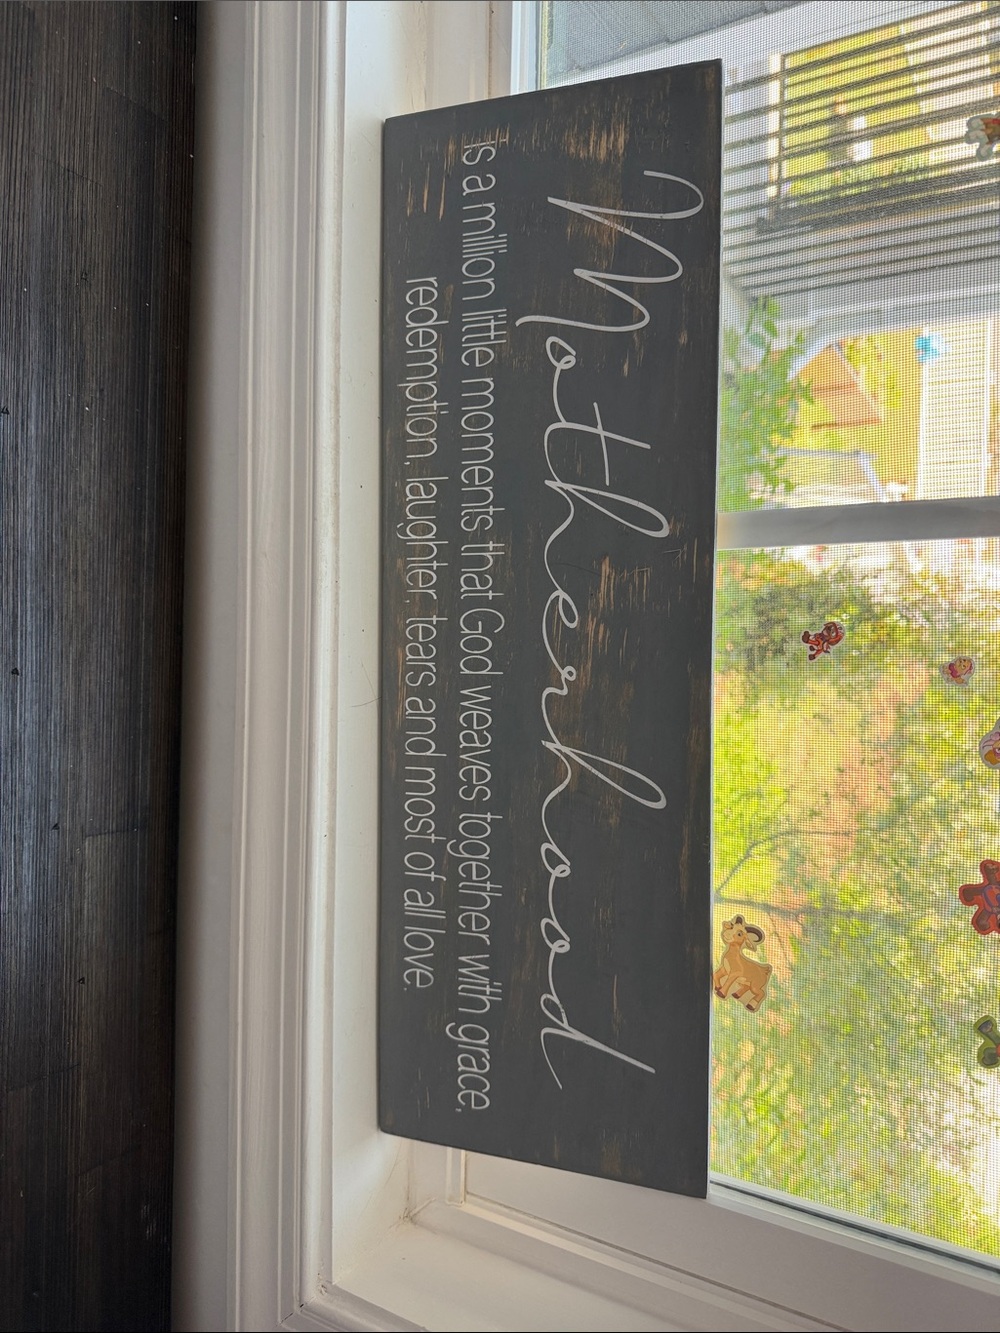 Motherhood
is a million little moments that God weaves together with grace,
redemption, laughter, tears and most of all love.